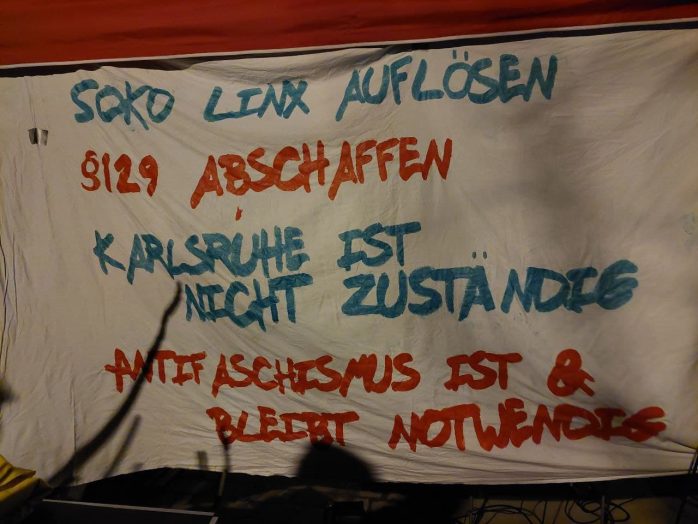 SOKO LINX AUFLÖSEN
§129 ABSCHAFFEN
KARLSRUHE IST
NICHT ZUSTÄNDIG
ANTIFASCHISMUS IST &
BLEIBT NOTWENDIG